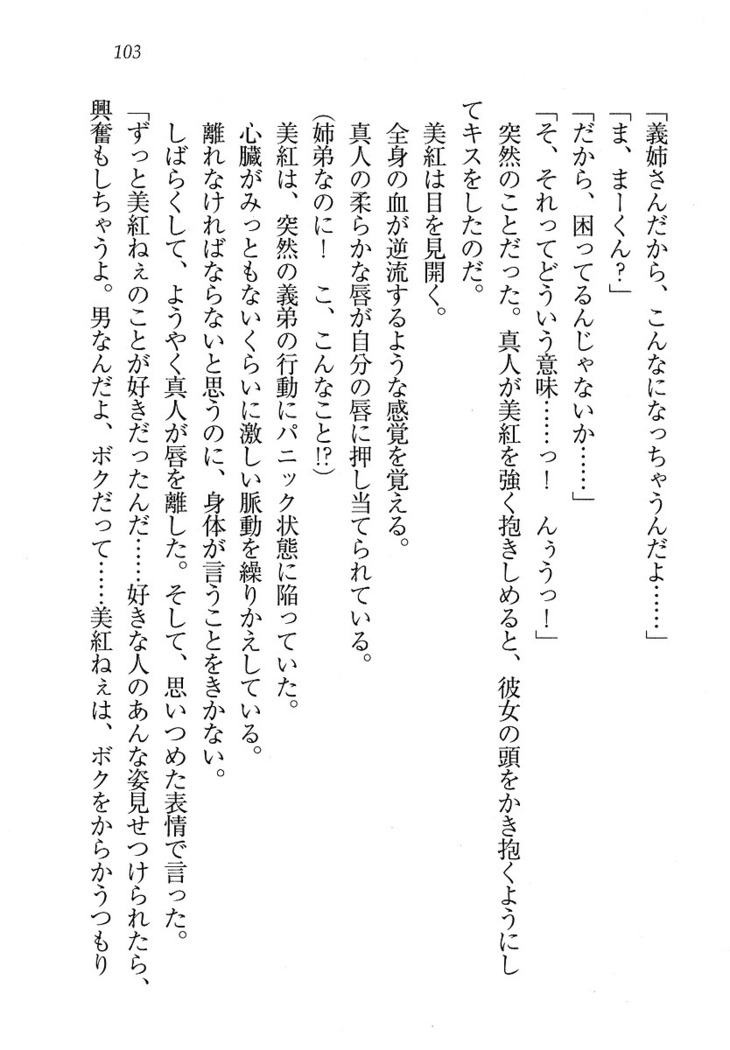 103
「義姉さんだから、こんなになっちゃうんだよ……」
「ま、まーくん？」
「だから、困ってるんじゃないか……」
「そ、それってどういう意味……っ！　んぅうっ！」
　突然のことだった。真人が美紅を強く抱きしめると、彼女の頭をかき抱くようにし
てキスをしたのだ。
　美紅は目を見開く。
　全身の血が逆流するような感覚を覚える。
　真人の柔らかな唇が自分の唇に押し当てられている。
（姉弟なのに！　こ、こんなこと!?）
　美紅は、突然の義弟の行動にパニック状態に陥っていた。
　心臓がみっともないくらいに激しい脈動を繰りかえしている。
　離れなければならないと思うのに、身体が言うことをきかない。
　しばらくして、ようやく真人が唇を離した。そして、思いつめた表情で言った。
「ずっと美紅ねぇのことが好きだったんだ……好きな人のあんな姿見せつけられたら、
興奮もしちゃうよ。男なんだよ、ボクだって……美紅ねぇは、ボクをからかうつもり